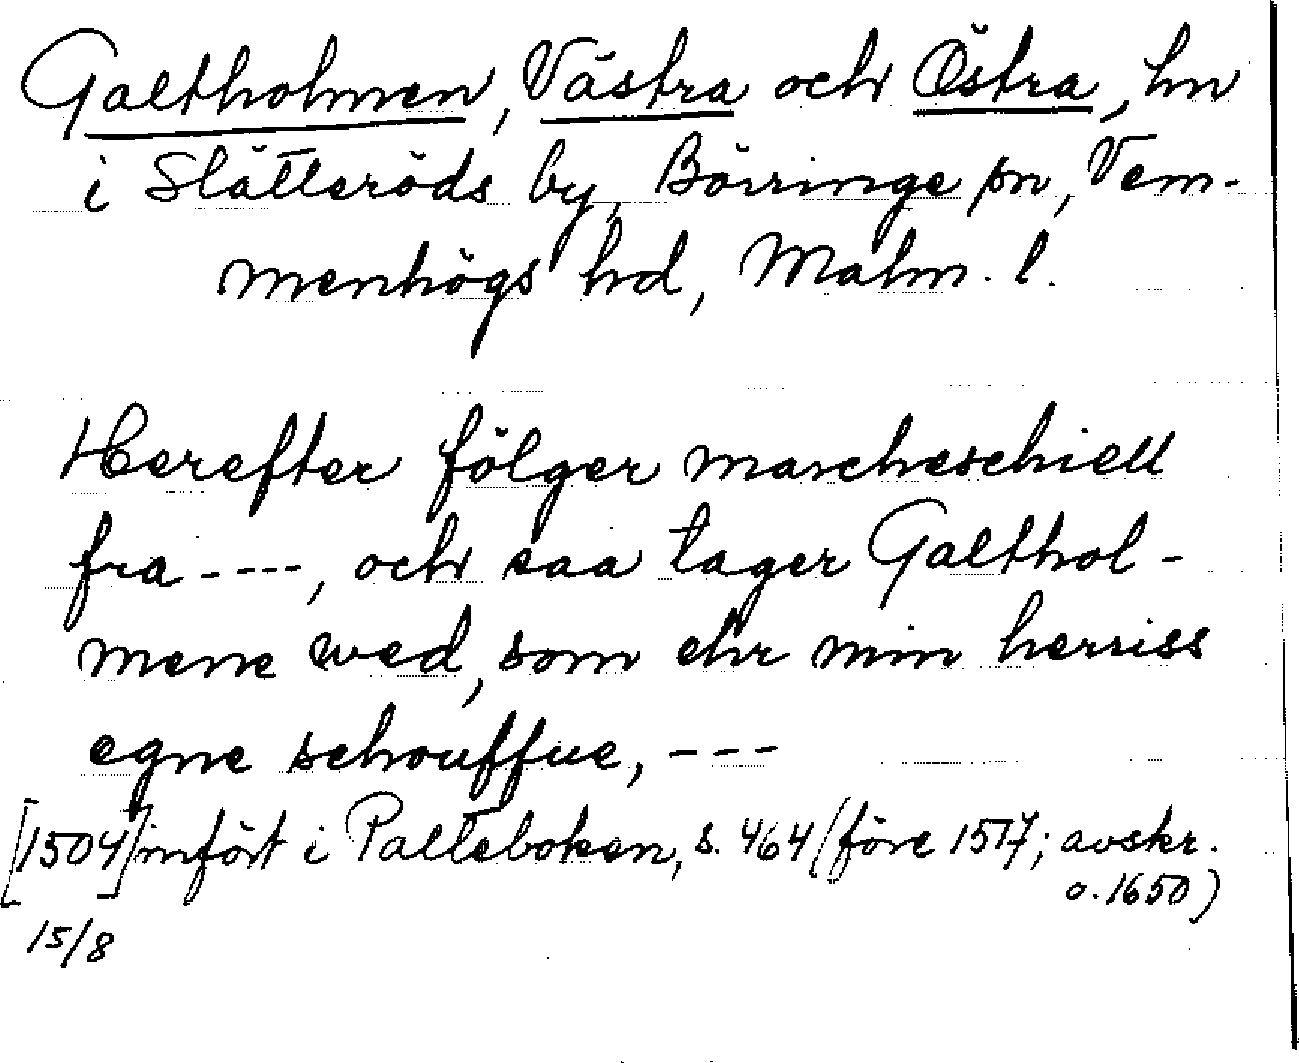 Galtholmen, Västra och Östra, hn
i Slätteröds by, Börringe sn, Vem-
menhögs hd, Malm. l.
Herefter följger marcheschiell
fra ----, och saa tager Galthol-
mene wed, som ehr min herriss
egne schouffue, ---
[1504] infört i Palteboken, s. 464 (före 1517; avskr.
o. 1650)
15/8